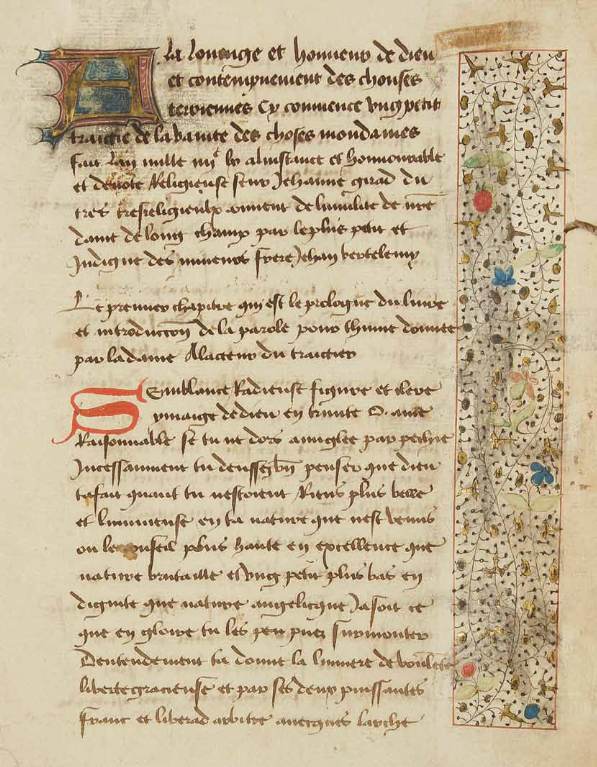 A la louenge et honneur de dieu
et contempnement des chouses
terriennes Cy commence ung petit
traictie de la vanite des choses mondaines
fait lan mille iiijc lv a linstance et honnourable
et devote Religieuse seur Jehanne girad du
tres tresreligieulx couvent de lumilite de nre
dame de long champ par le plus petit et
Indigne des mineurs frere Jehan bertelemy
Le premier chapitre qui est le prologue du livre
et introduction de la parole pour thume donnee
par la dame A lacteur du traictier
Semblance Radieuse figure et clere
ymaige de dieu en trinite O ame
Raisonnable se tu ne dors aveuglee par pechie
Incessanment tu deusses bn penser que dieu
ta fait quant tu nestoies Riens plus belle
et lumineuse en ta nature que nest venus
ou le souleil plus haute en excellence que
nature brutalle et ung petit plus bas en
dignite que nature angelicque Jasoit ce
que en gloire tu les peu puez surmonter
Dentendement ta donne la lumiere de voulete
liberte gracieuse et par ses deux puissantes
franc et liberad arbitre avecques larche